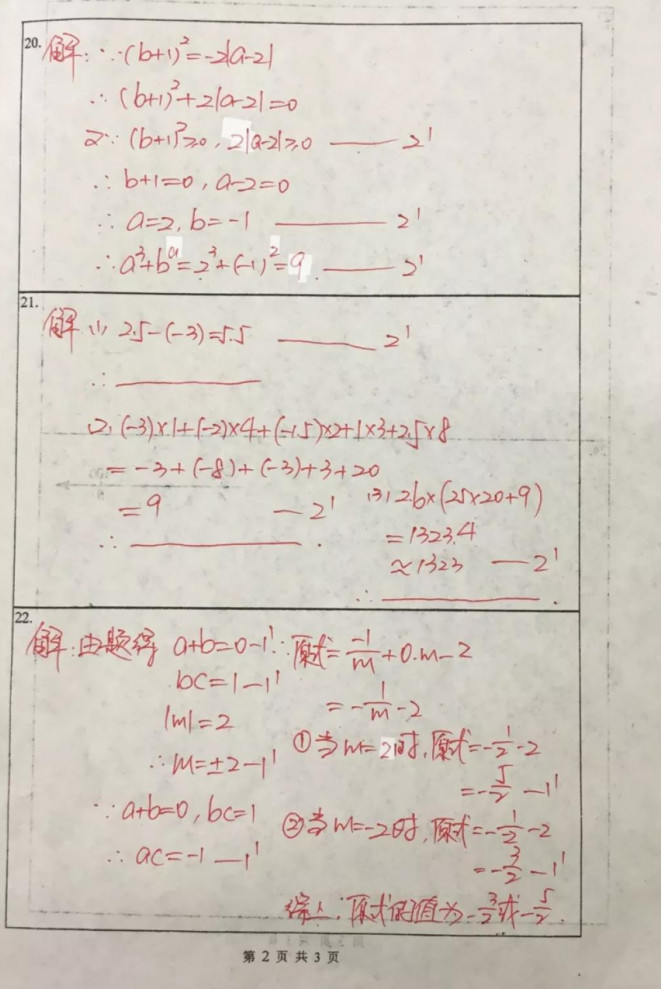 20. 解: ∵ (b+1)²=-2|a-2|
∴ (b+1)²+2|a-2|=0
又∵ (b+1)²≥0, 2|a-2|≥0 —— 2'
∴ b+1=0, a-2=0
∴ a=2, b=-1 —— 2'
∴ a³+bᵃ=2³+(-1)²=9. —— 2'
21.
解 (1) 2.5-(-3)=5.5 —— 2'
∴ ————
(2) (-3)×1+(-2)×4+(-1.5)×2+1×3+2.5×8
= -3+(-8)+(-3)+3+20
= 9 — 2'
∴ ———— .
(3) 2.6×(25×20+9)
=1323.4
≈1323 — 2'
∴ ———— .
22.
解: 由题得 a+b=0 -1'
bc=1 -1'
|m|=2
∴ m=±2 -1'
∵ a+b=0, bc=1
∴ ac=-1 —1'
∴ 原式=-1/m+0·m-2
=-1/m-2
①当m=2时, 原式=-1/2-2
=-5/2 -1'
②当m=-2时, 原式=-1/-2-2
=-3/2 -1'
综上: 原式的值为-3/2或-5/2.
第 2 页 共 3 页